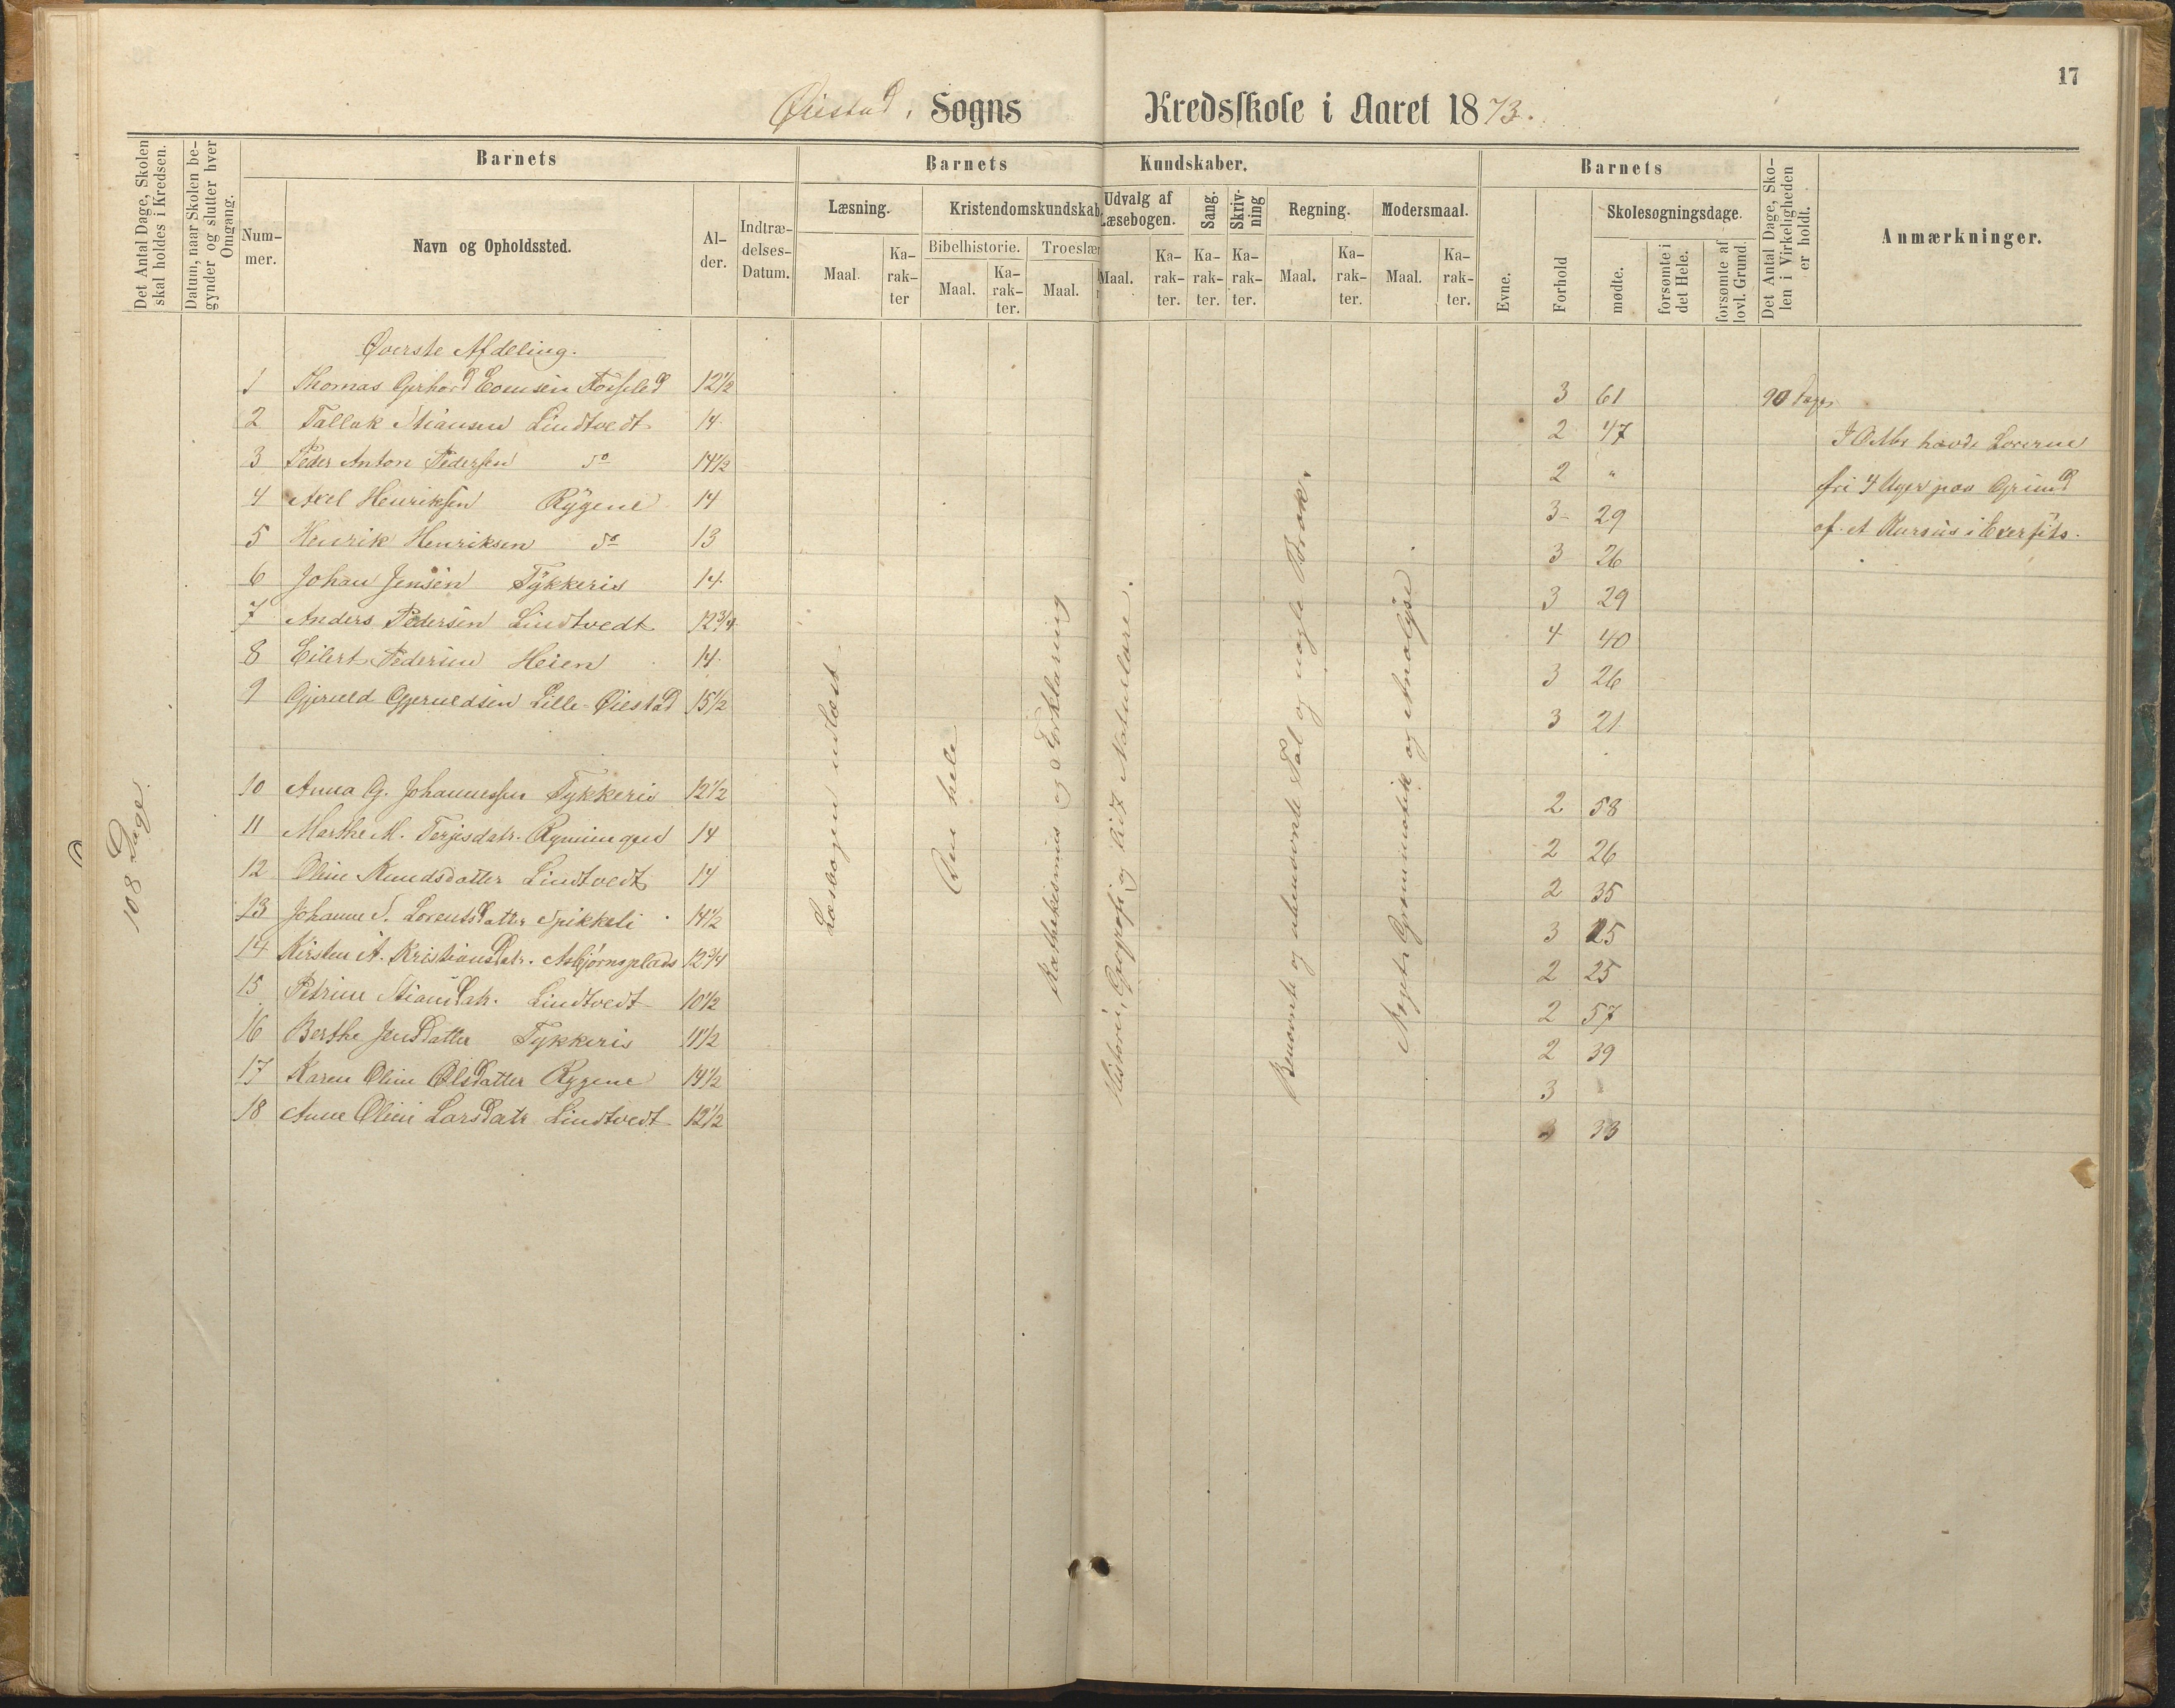 17
Øiestad, Sogns Kredsskole i Aaret 1873.
Det Antal Dage, Skolen skal holdes i Kredsen.
Datum, naar Skolen begynder og slutter hver Omgang.
Barnets
Num-
mer.
Navn og Opholdssted.
Al-
der.
Indtræ-
delses-
Datum.
Barnets Kundskaber.
Læsning.
Maal.
Ka-
rak-
ter
Kristendomskundskab.
Bibelhistorie.
Maal.
Ka-
rak-
ter.
Troeslær
Maal.
Udvalg af
Læsebogen.
Maal.
Ka-
rak-
ter.
Sang.
Ka-
rak-
ter.
Skriv-
ning
Ka-
rak-
ter.
Regning.
Maal.
Ka-
rak-
ter.
Modersmaal.
Maal.
Ka-
rak-
ter.
Barnets
Evne.
Forhold
Skolesøgningsdage.
mødte.
forsømte i
det Hele.
forsømte af
lovl. Grund.
Det Antal Dage, Sko-
len i Virkeligheden
er holdt.
Anmærkninger.
108 Dage.
Øverste Afdeling.
1 Thomas Gerhard 12½ 3 61 90 Dage
2 Tallak Stiansen Lindtvedt 14 2 47
3 Peder Anton Pedersen do 14½ 2 "
4 Axel Henriksen Rygene 14 3 29
5 Henrik Henriksen do 13 3 26
6 Johan Jensen Tykkeris 14 3 29
7 Anders Pedersen Lindtvedt 12¾ 4 40
8 Eilert Pedersen Heien 14 3 26
9 Gjeruld Gjeruldsen Lille-Øiestad 15½ 3 21
10 Anna G. Johannessen Tykkeris 12½ 2 58
11 Marthe M. Terjisdatr. 14 2 26
12 Oline Knudsdatter Lindtvedt 14 2 35
13 Johanne S. Lorentsdatter Spikkeli 14½ 3 25
14 Kirsten A. Kristiansdatr. Asbjørnsplads 12¾ 2 25
15 Petrine Stiansdatr. Lindtvedt 10½ 2 57
16 Berthe Jensdatter Tykkeris 11½ 2 39
17 Karen Oline Olsdatter Rygene 14½ 3
18 Anne Oline Larsdatr Lindtvedt 12½ 33
Læsebogen udlæst
Den hele
Kathekismus og Forklaring
Historie, Geografi og lidt Naturlære.
Benævnte og ubenævnte Tal og nogle Brøk.
Noget Grammatik og Analyse
havde Lærerne
fri 4 Uger paa Grund
af et Kursus i